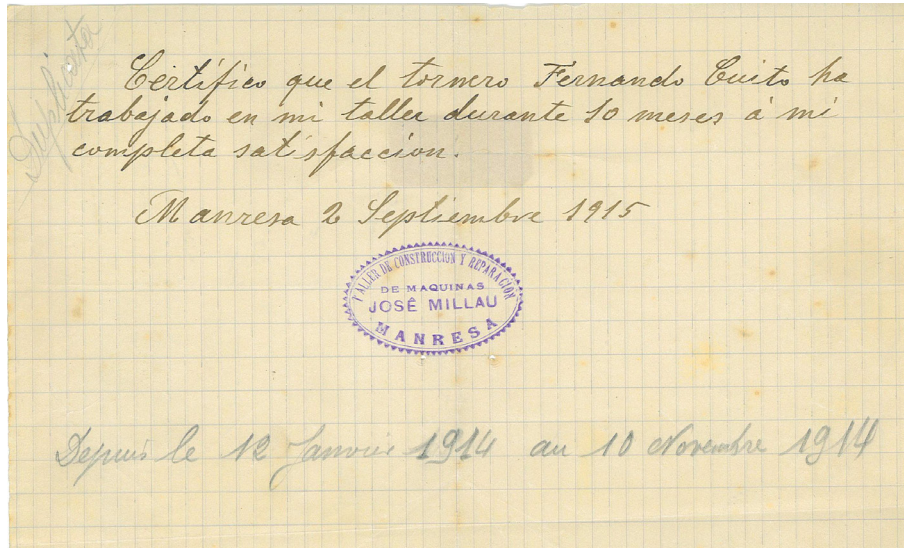 Duplicata
Certifico que el tornero Fernando Cuito ha
trabajado en mi taller durante 10 meses á mi
completa satisfaccion.
Manresa 2 Septiembre 1915
TALLER DE CONSTRUCCION Y REPARACIÓN
DE MAQUINAS
JOSÉ MILLAU
MANRESA
Depuis le 12 Janvier 1914 au 10 Novembre 1914